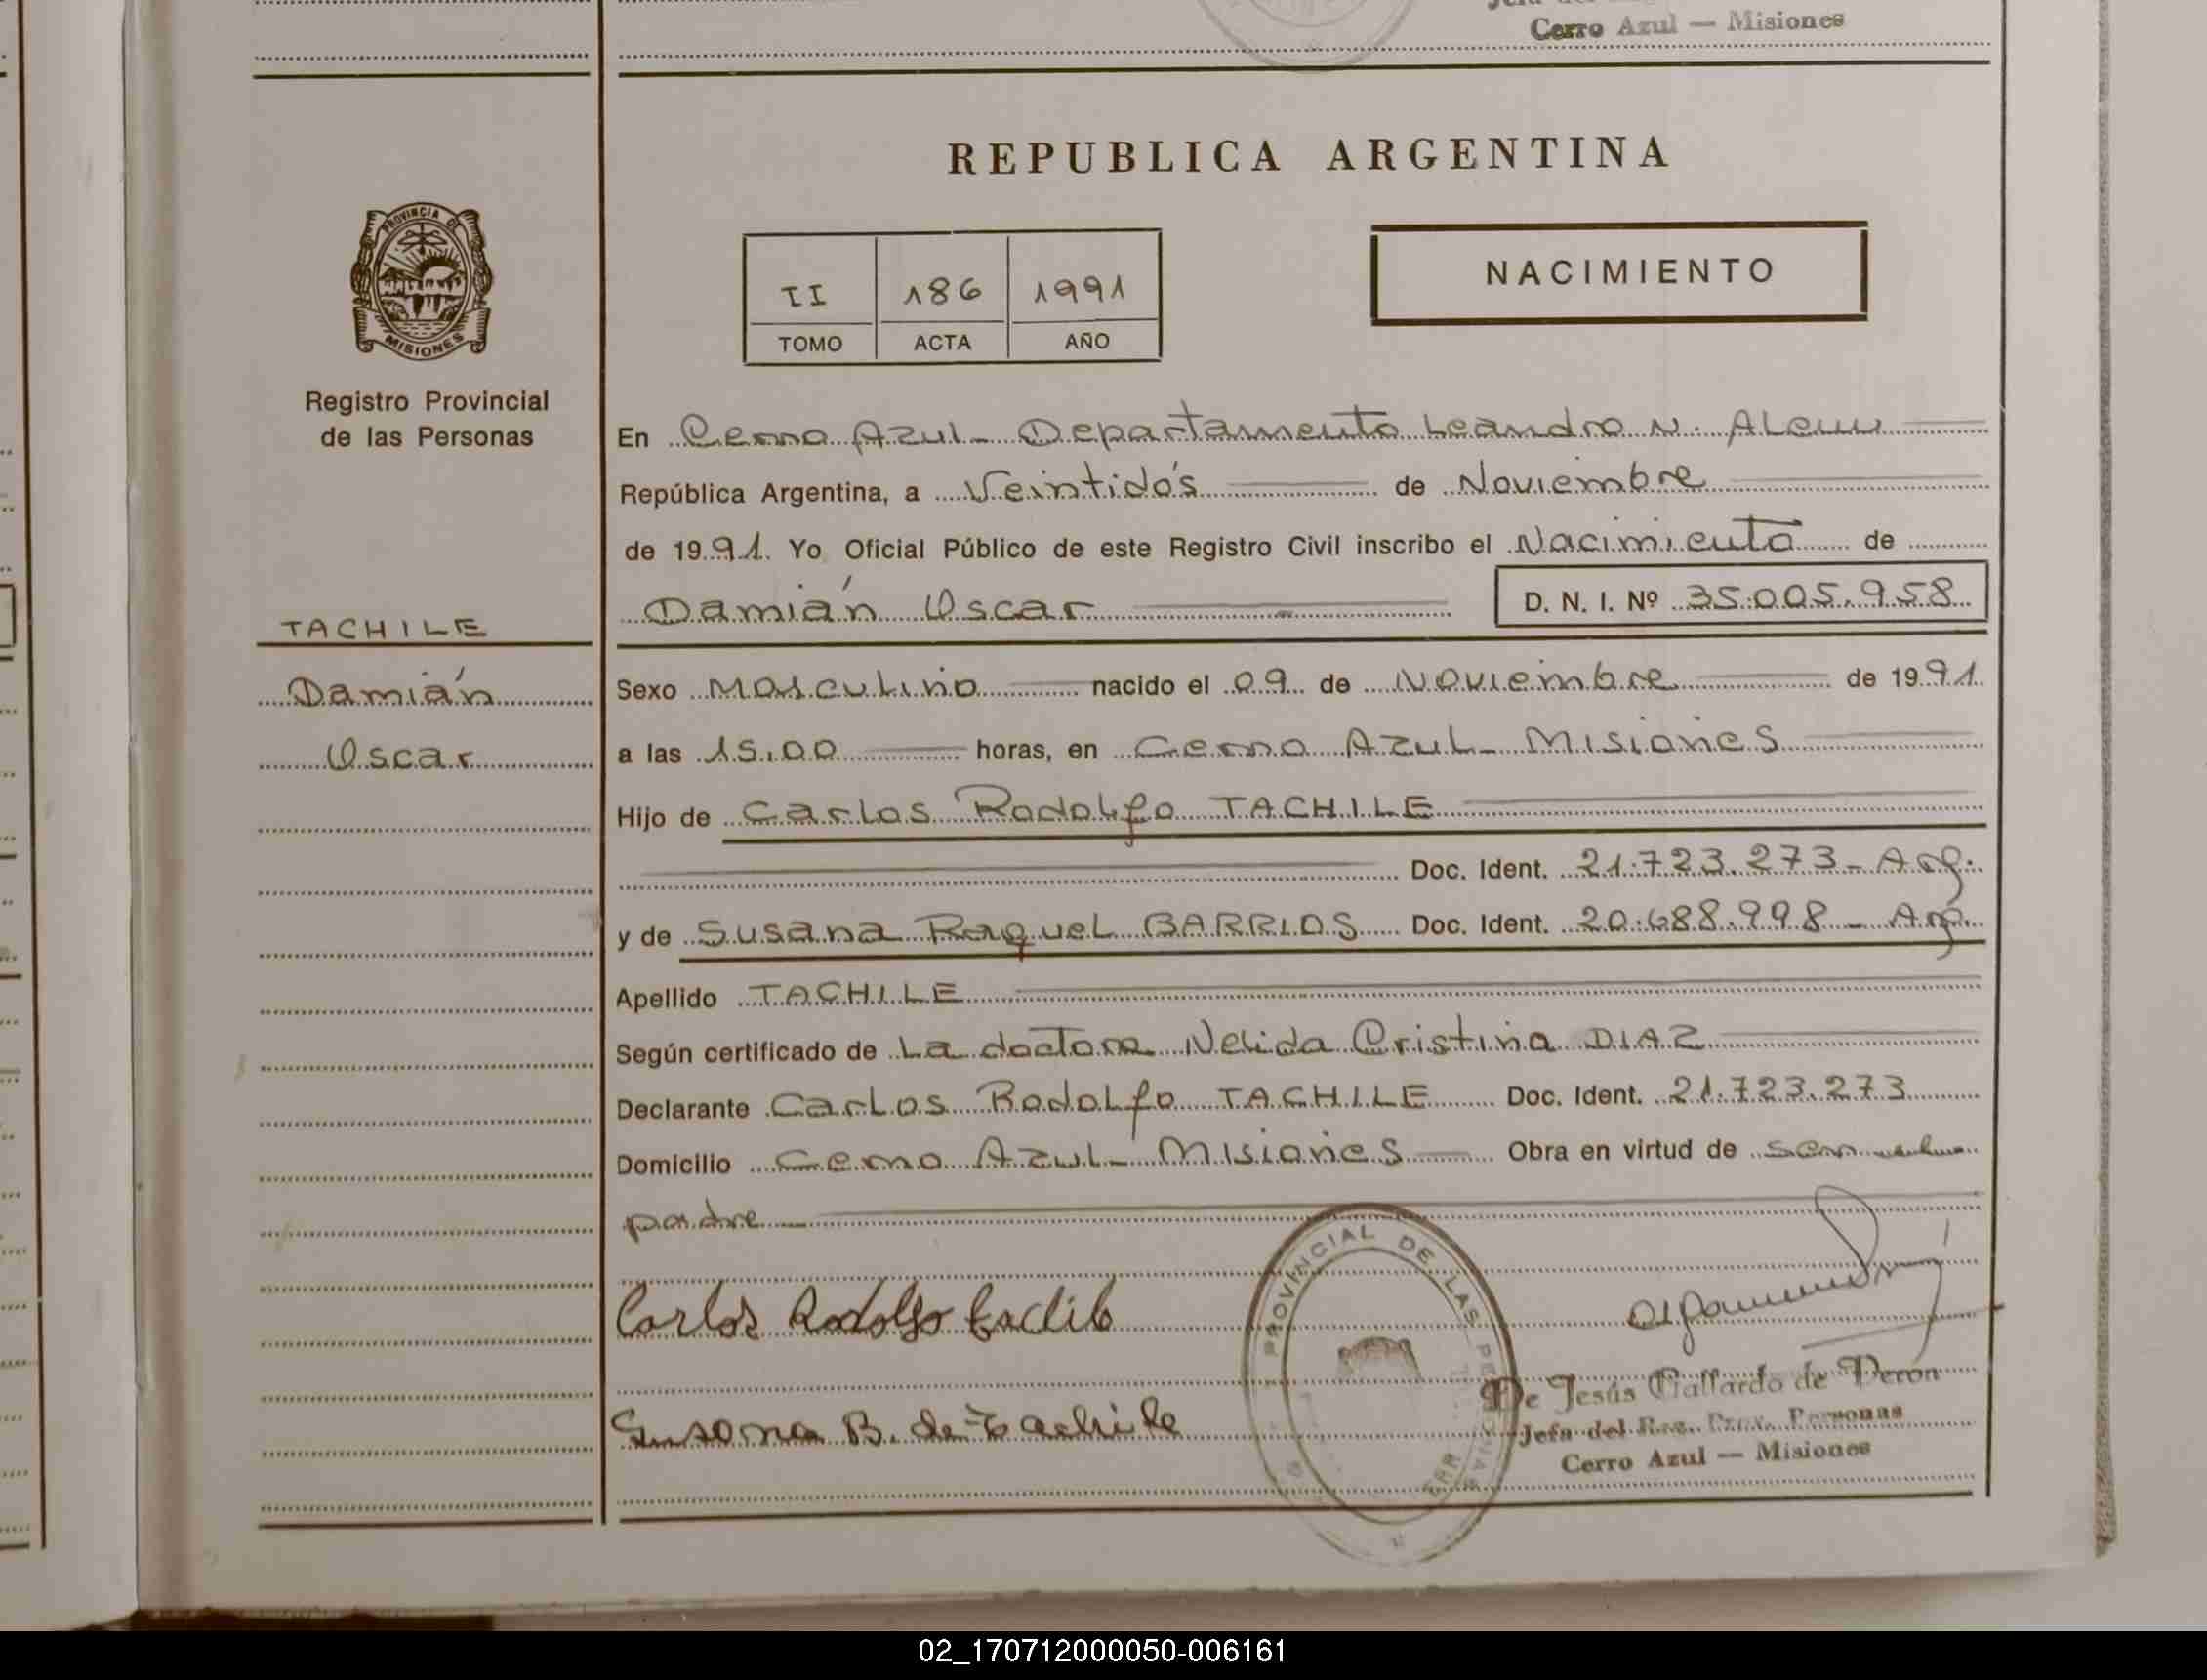 Cerro Azul — Misiones
REPUBLICA ARGENTINA
PROVINCIA DE
MISIONES
Registro Provincial
de las Personas
II 186 1991
TOMO ACTA AÑO
NACIMIENTO
En Cerro Azul - Departamento Leandro N. Alem
República Argentina, a Veintidós de Noviembre
de 1991. Yo Oficial Público de este Registro Civil inscribo el Nacimiento de
Damián Oscar D. N. I. Nº 35.005.958
TACHILE
Damián
Oscar
Sexo Masculino nacido el 09 de Noviembre de 1991
a las 15,00 horas, en Cerro Azul - Misiones
Hijo de Carlos Rodolfo TACHILE
Doc. Ident. 21.723.273 - Arg.
y de Susana Raquel BARRIOS Doc. Ident. 20.688.998 - Arg.
Apellido TACHILE
Según certificado de La doctora Nelida Cristina DIAZ
Declarante Carlos Rodolfo TACHILE Doc. Ident. 21.723.273
Domicilio Cerro Azul - Misiones Obra en virtud de ser
padre
Carlos Rodolfo
PROVINCIAL DE LAS PERSONAS
Susana B. de Tachile
De Jesús Gallardo de Perón
Jefa del Reg. Prov. Personas
Cerro Azul — Misiones
02_170712000050-006161